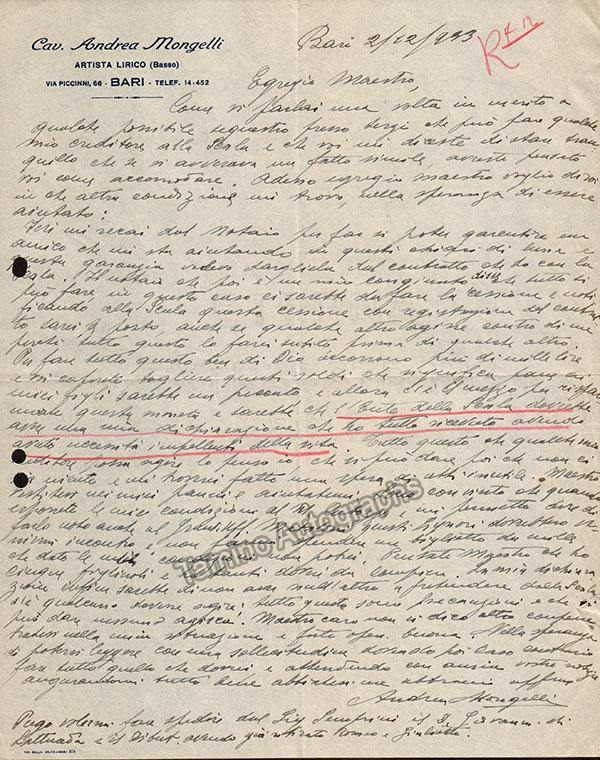 Cav. Andrea Mongelli
ARTISTA LIRICO (Basso)
VIA PICCINNI, 66 - BARI - TELEF. 14-452
Bari 2/12/933
R
Egregio Maestro,
Come vi parlai una volta in merito a
qualche possibile sequestro presso terzi che può fare qualche
mio creditore alla Scala e che voi mi diceste di stare tran
quillo che se si avverava un fatto simile, avreste pensato
voi come accomodare. Adesso egregio maestro voglio dirvi
in che altra condizione mi trovo, nella speranza di essere
aiutato:
Ieri mi recai dal Notaio per far si poter garentire un
amico che mi sta aiutando in questi che
questa garanzia volevo dargliela dal contratto che ho con la
Scala. Il notaio che poi è un mio congiunto disse che tutto si
può fare in questo caso ci sarebbe da fare la cessione e noti
ficando alla Scala questa cessione con registrazione del contra
a posto, anche se qualche altro agisse contro di me
perché tutto questo lo farei subito prima di qualche altro.
Per fare tutto questo ben di Dio occorrono più di mille lire
e voi capirete togliere questi soldi che significa pane ai
miei figli sarebbe un peccato, e allora vi è il mezzo per rispar
miare questa moneta e sarebbe che l'Ente della Scala dovrebbe
avere una mia dichiarazione che ho tutto ricevuto avendo
avuto necessità impellenti della vita. Tutto questo che qualche mio
creditore possa agire lo penso io che si può dare poi che non ci
sia niente e mi troverei fatto una spesa inutile. Maestro
mettetevi nei miei panni e aiutatemi. Sono convinto che quando
esporrete le mie condizioni al mi permetto dire di
farlo noto anche al questi signori dovrebbero ve
nirmi incontro e non farmi spendere un biglietto da mille
che date le mie non potrei. Pensate Maestro che ho
cinque figliuoli e tanti doveri da compiere. La mia dichiara
zione infine sarebbe di non aver null'altro a pretendere dalla Scala
se qualcuno dovesse agire; tutto questo sono precauzioni e che
può dare nessuno agisca. Maestro caro non vi dico altro
nella mia situazione e fate opera buona. Nella speranza
di potervi leggere con una sollecitudine dovendo poi caso contrario
fare tutto quello che dovrei e attendendo con ansia vostre notizie
augurandomi tutto bene abbiatemi
Andrea Mongelli
Prego volermi fare spedire dal Sig. Semprini il S. Giovanni di
Lattuada e il Debut. avendo già ritirato Romeo e Giulietta.
Tamino Autographs